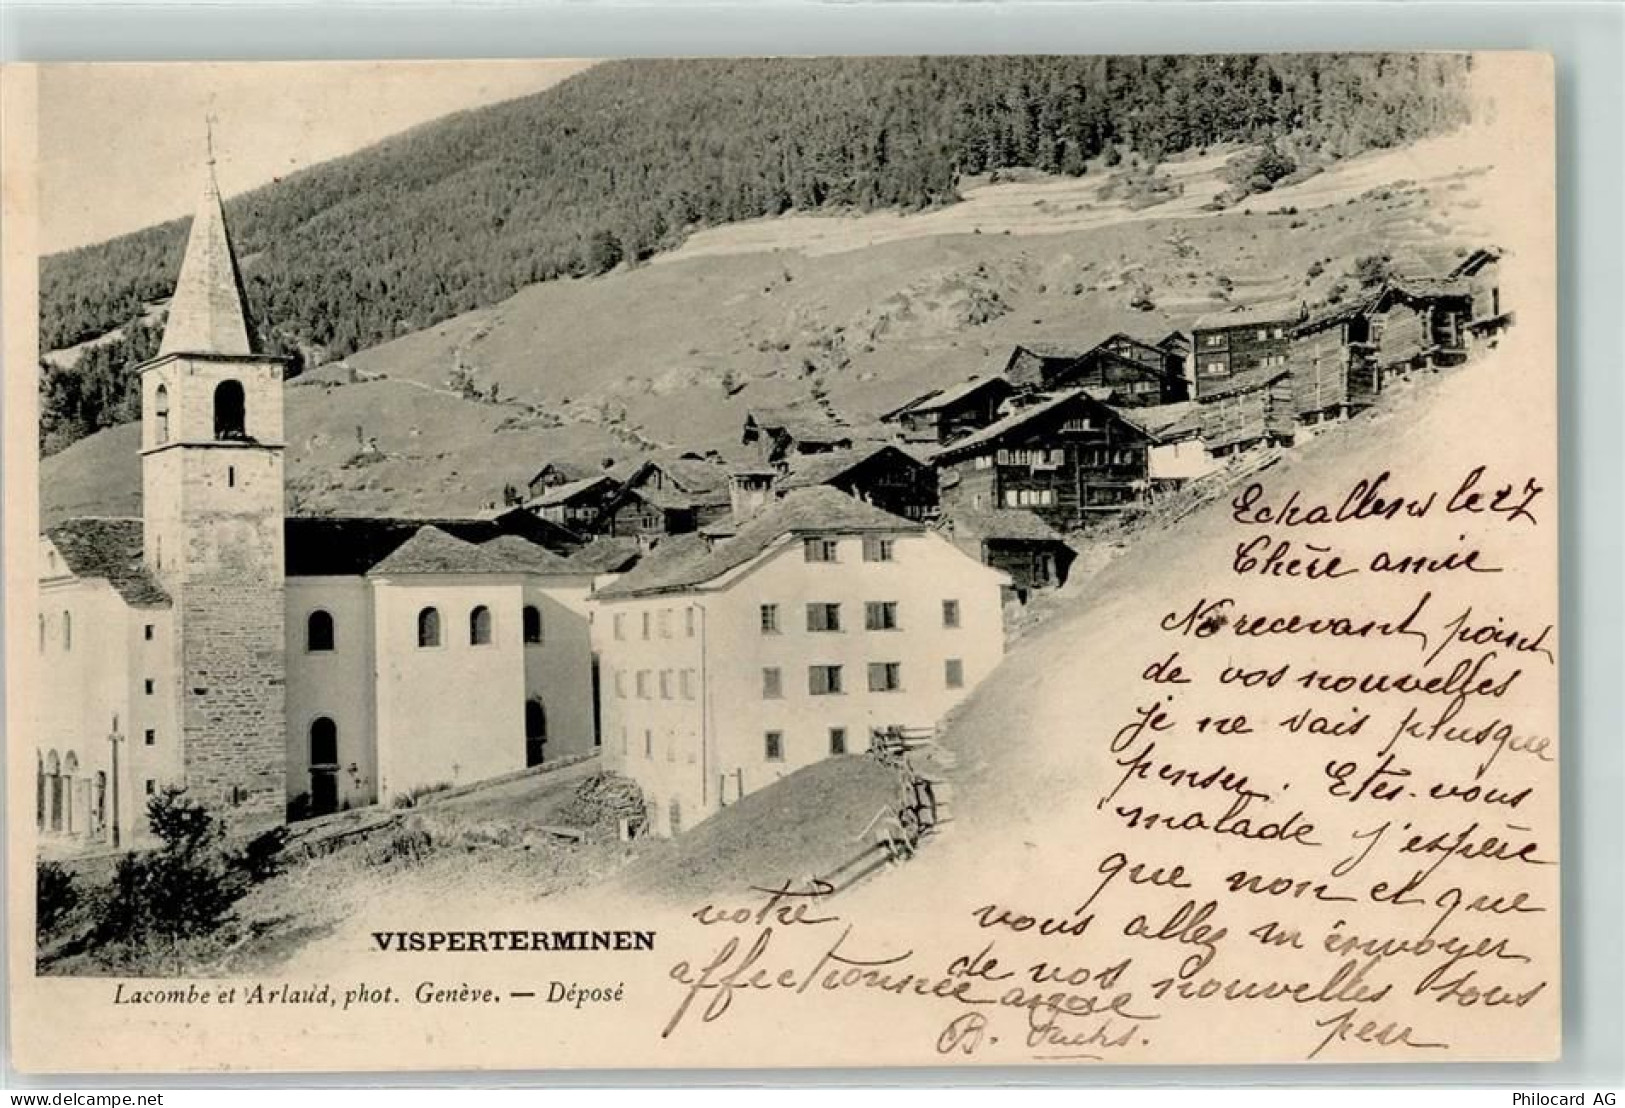 Echallens le 27
Chère amie
Ne recevant point
de vos nouvelles
je ne sais plus que
penser. Etes-vous
malade j'espère
que non et que
vous allez m'envoyer
de vos nouvelles sous
peu
votre
affectionnée amie
B. Fuchs.
VISPERTERMINEN
Lacombe et Arlaud, phot. Genève. — Déposé
delcampe.net
Philocard AG